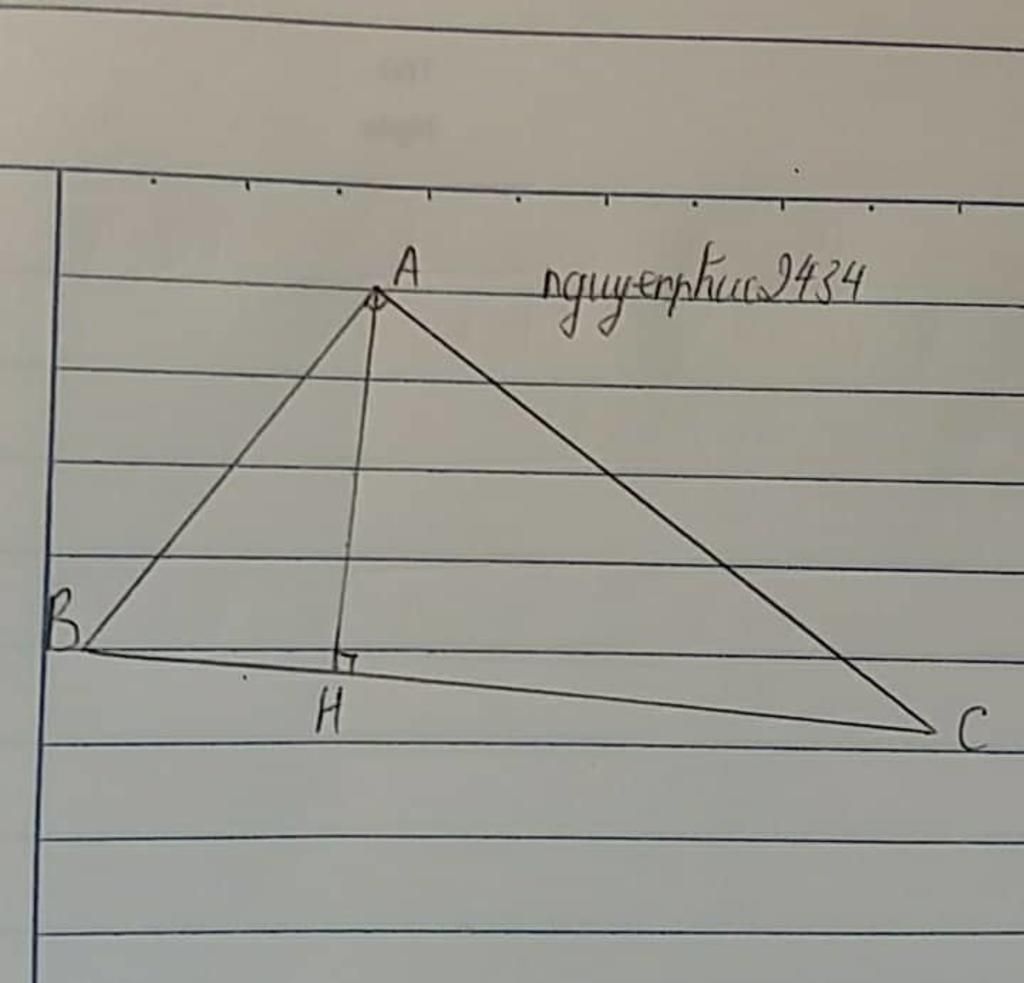 A
nguyenphuc2434
B
H
C